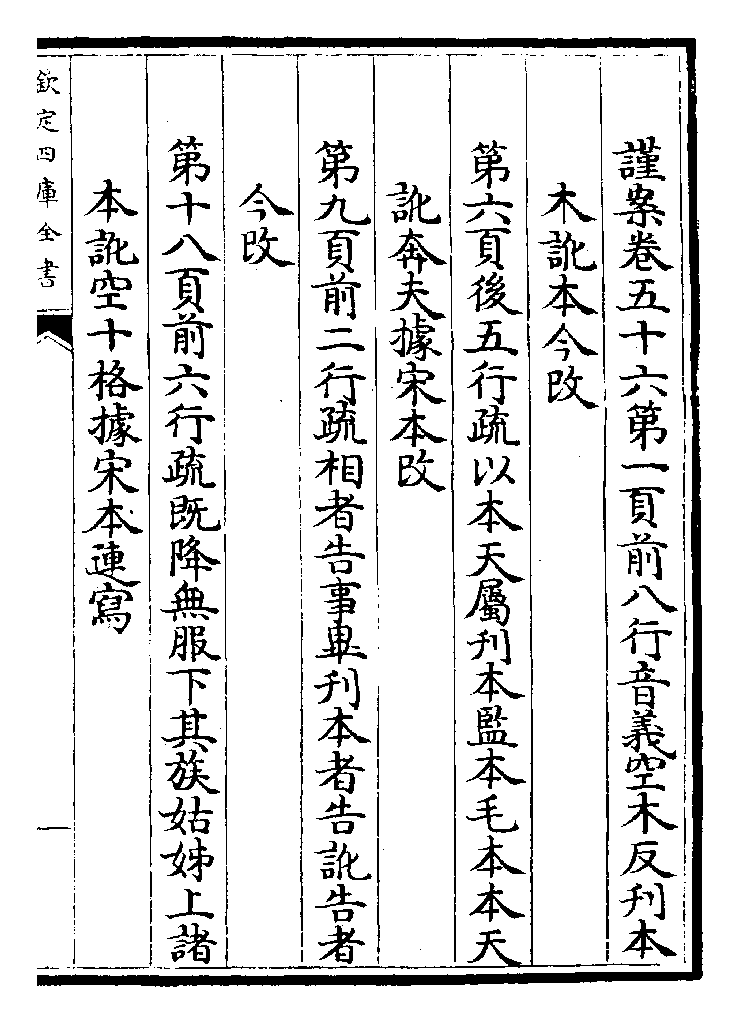 謹案卷五十六第一頁前八行音義空木反刋本
木訛本今改
第六頁後五行疏以本天屬刋本監本毛本本天
訛奔夫據宋本改
第九頁前二行疏相者告事畢刋本者告訛告者
今改
第十八頁前六行疏既降無服下其族姑姊上諸
本訛空十格據宋本連寫
欽定四庫全書
一